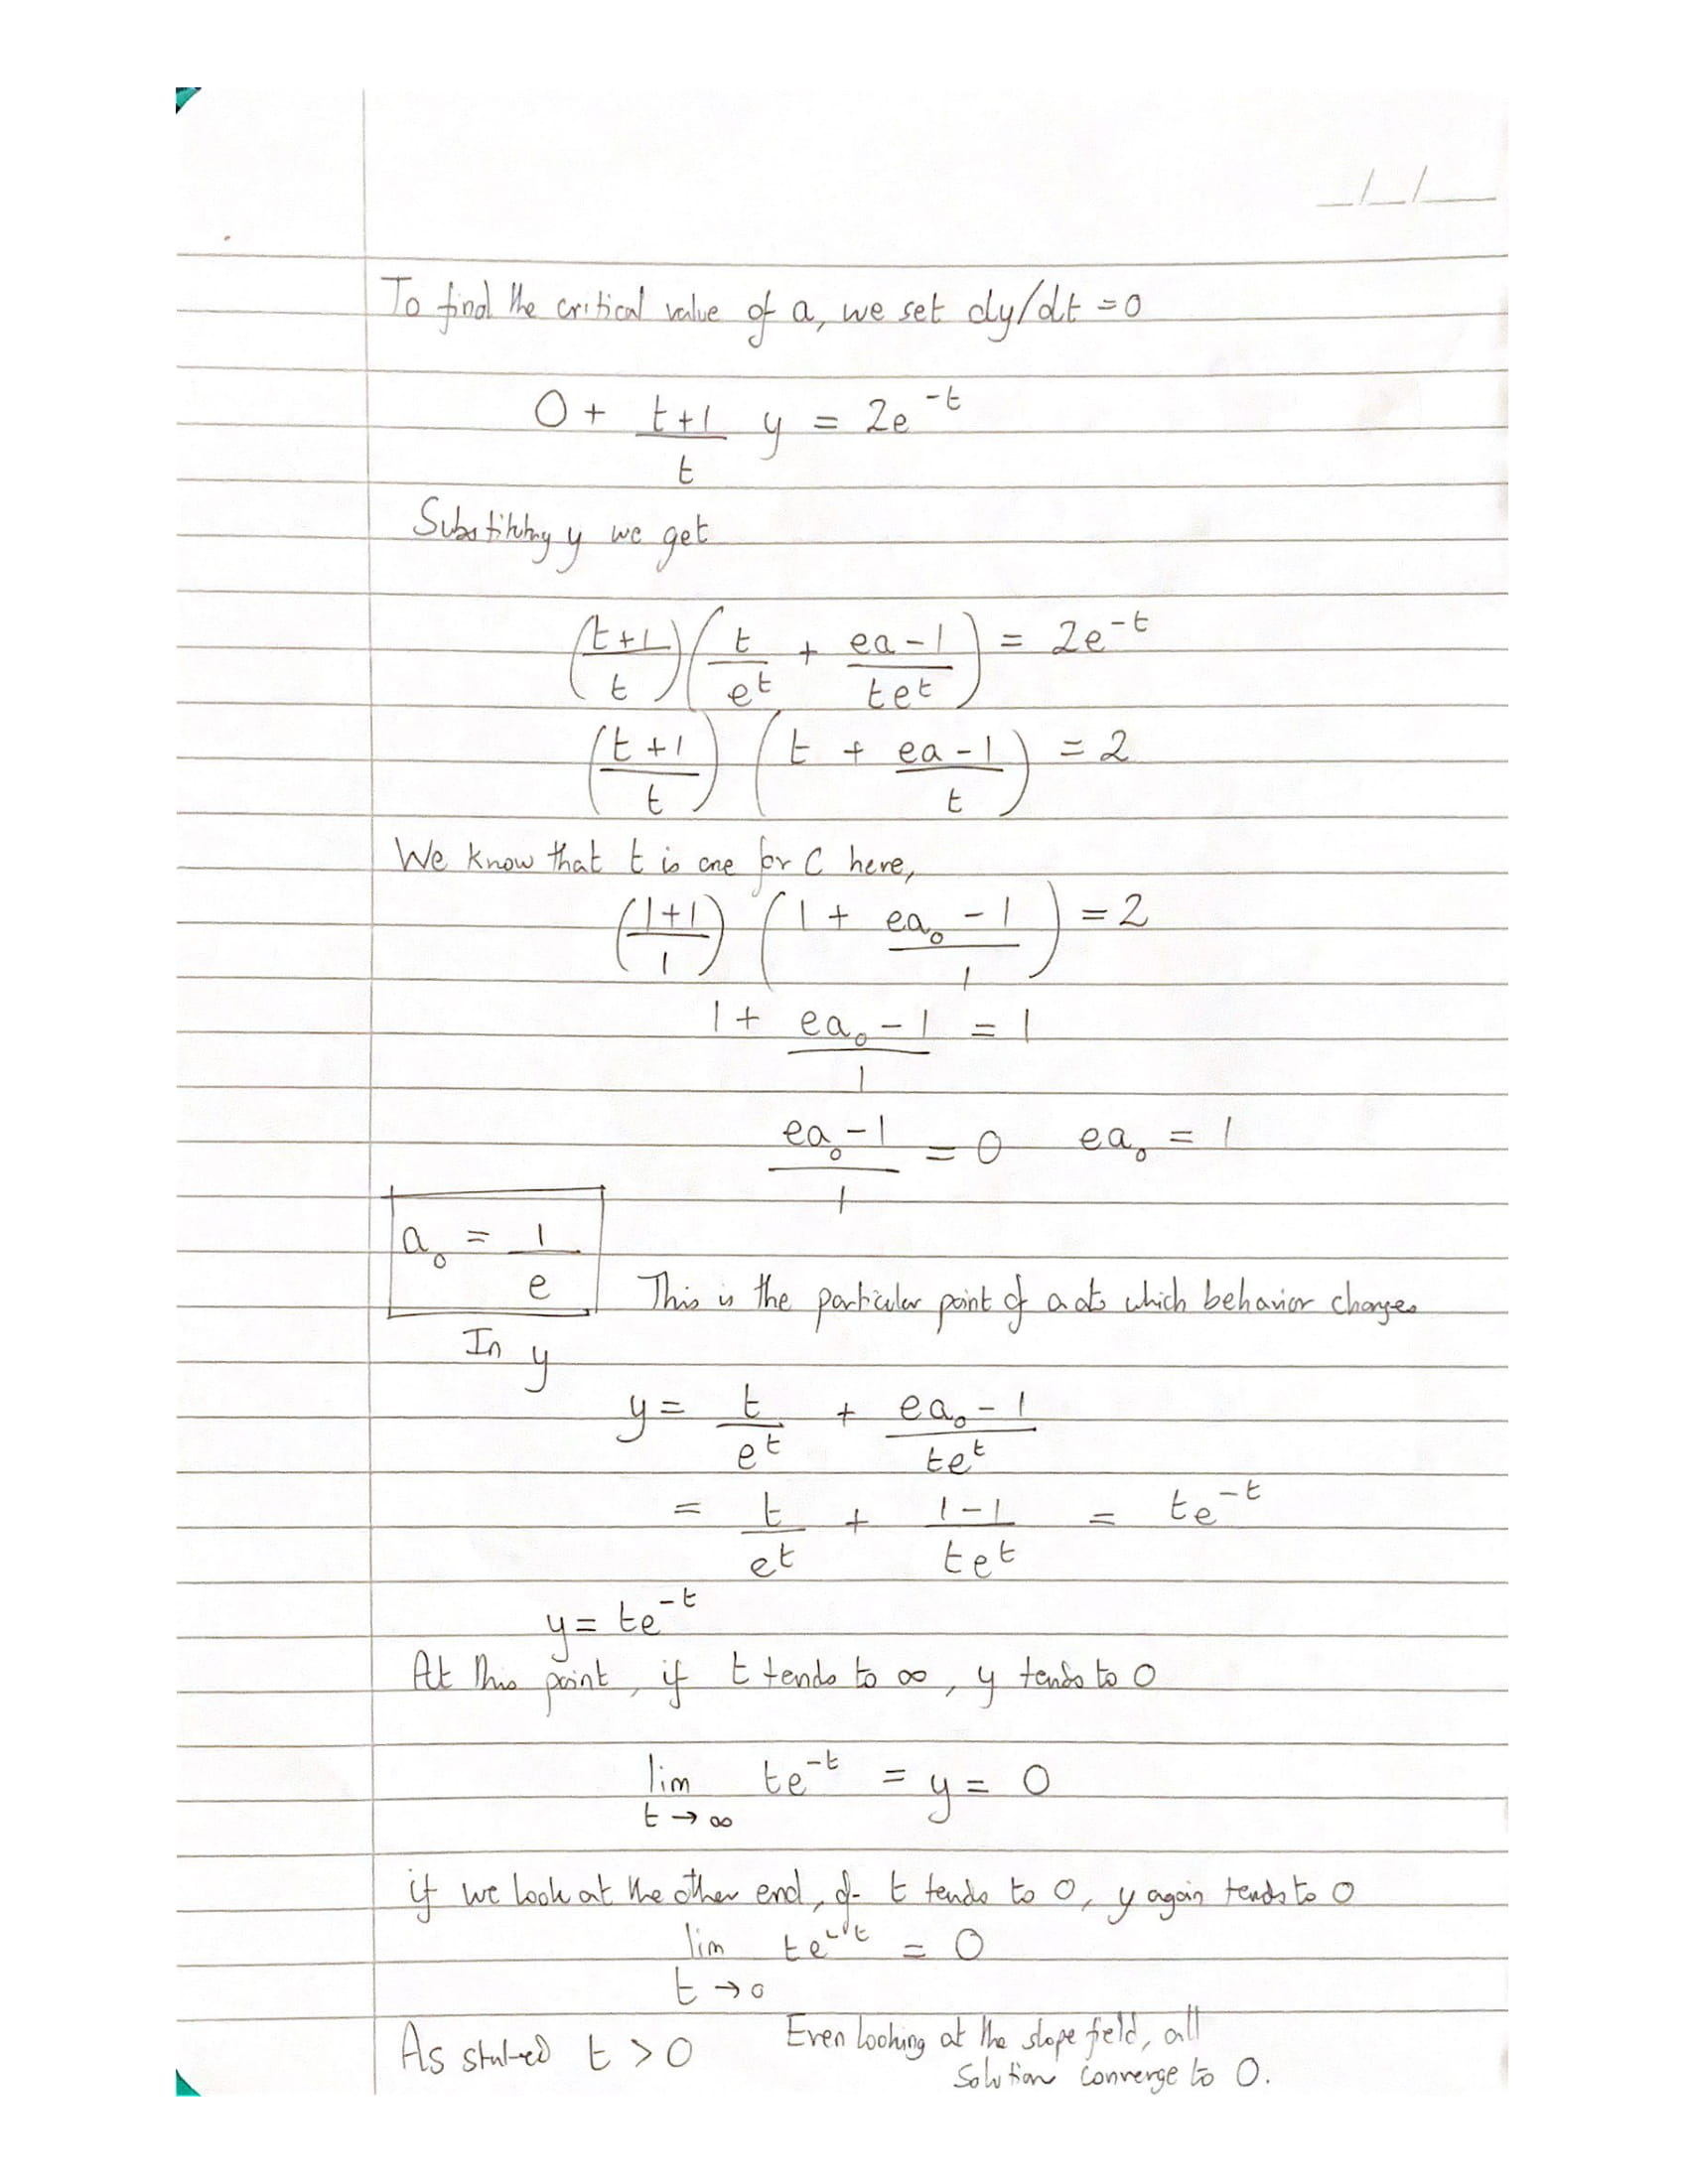 _/_/__
To find the critical value of a, we set dy/dt = 0
0 + (t+1)/t y = 2e^-t
Substituting y we get
((t+1)/t) (t/e^t + (ea-1)/(te^t)) = 2e^-t
((t+1)/t) (t + (ea-1)/t) = 2
We know that t is one for C here,
((1+1)/1) (1 + (ea₀-1)/1) = 2
1 + (ea₀-1)/1 = 1
(ea₀-1)/1 = 0 ea₀ = 1
a₀ = 1/e
This is the particular point of a at which behavior changes
In y
y = t/e^t + (ea₀-1)/(te^t)
= t/e^t + (1-1)/(te^t) = te^-t
y = te^-t
At this point, if t tends to ∞, y tends to 0
lim t→∞ te^-t = y = 0
if we look at the other end, if t tends to 0, y again tends to 0
lim t→0 te^-t = 0
As stated t > 0
Even looking at the slope field, all
solution converge to 0.